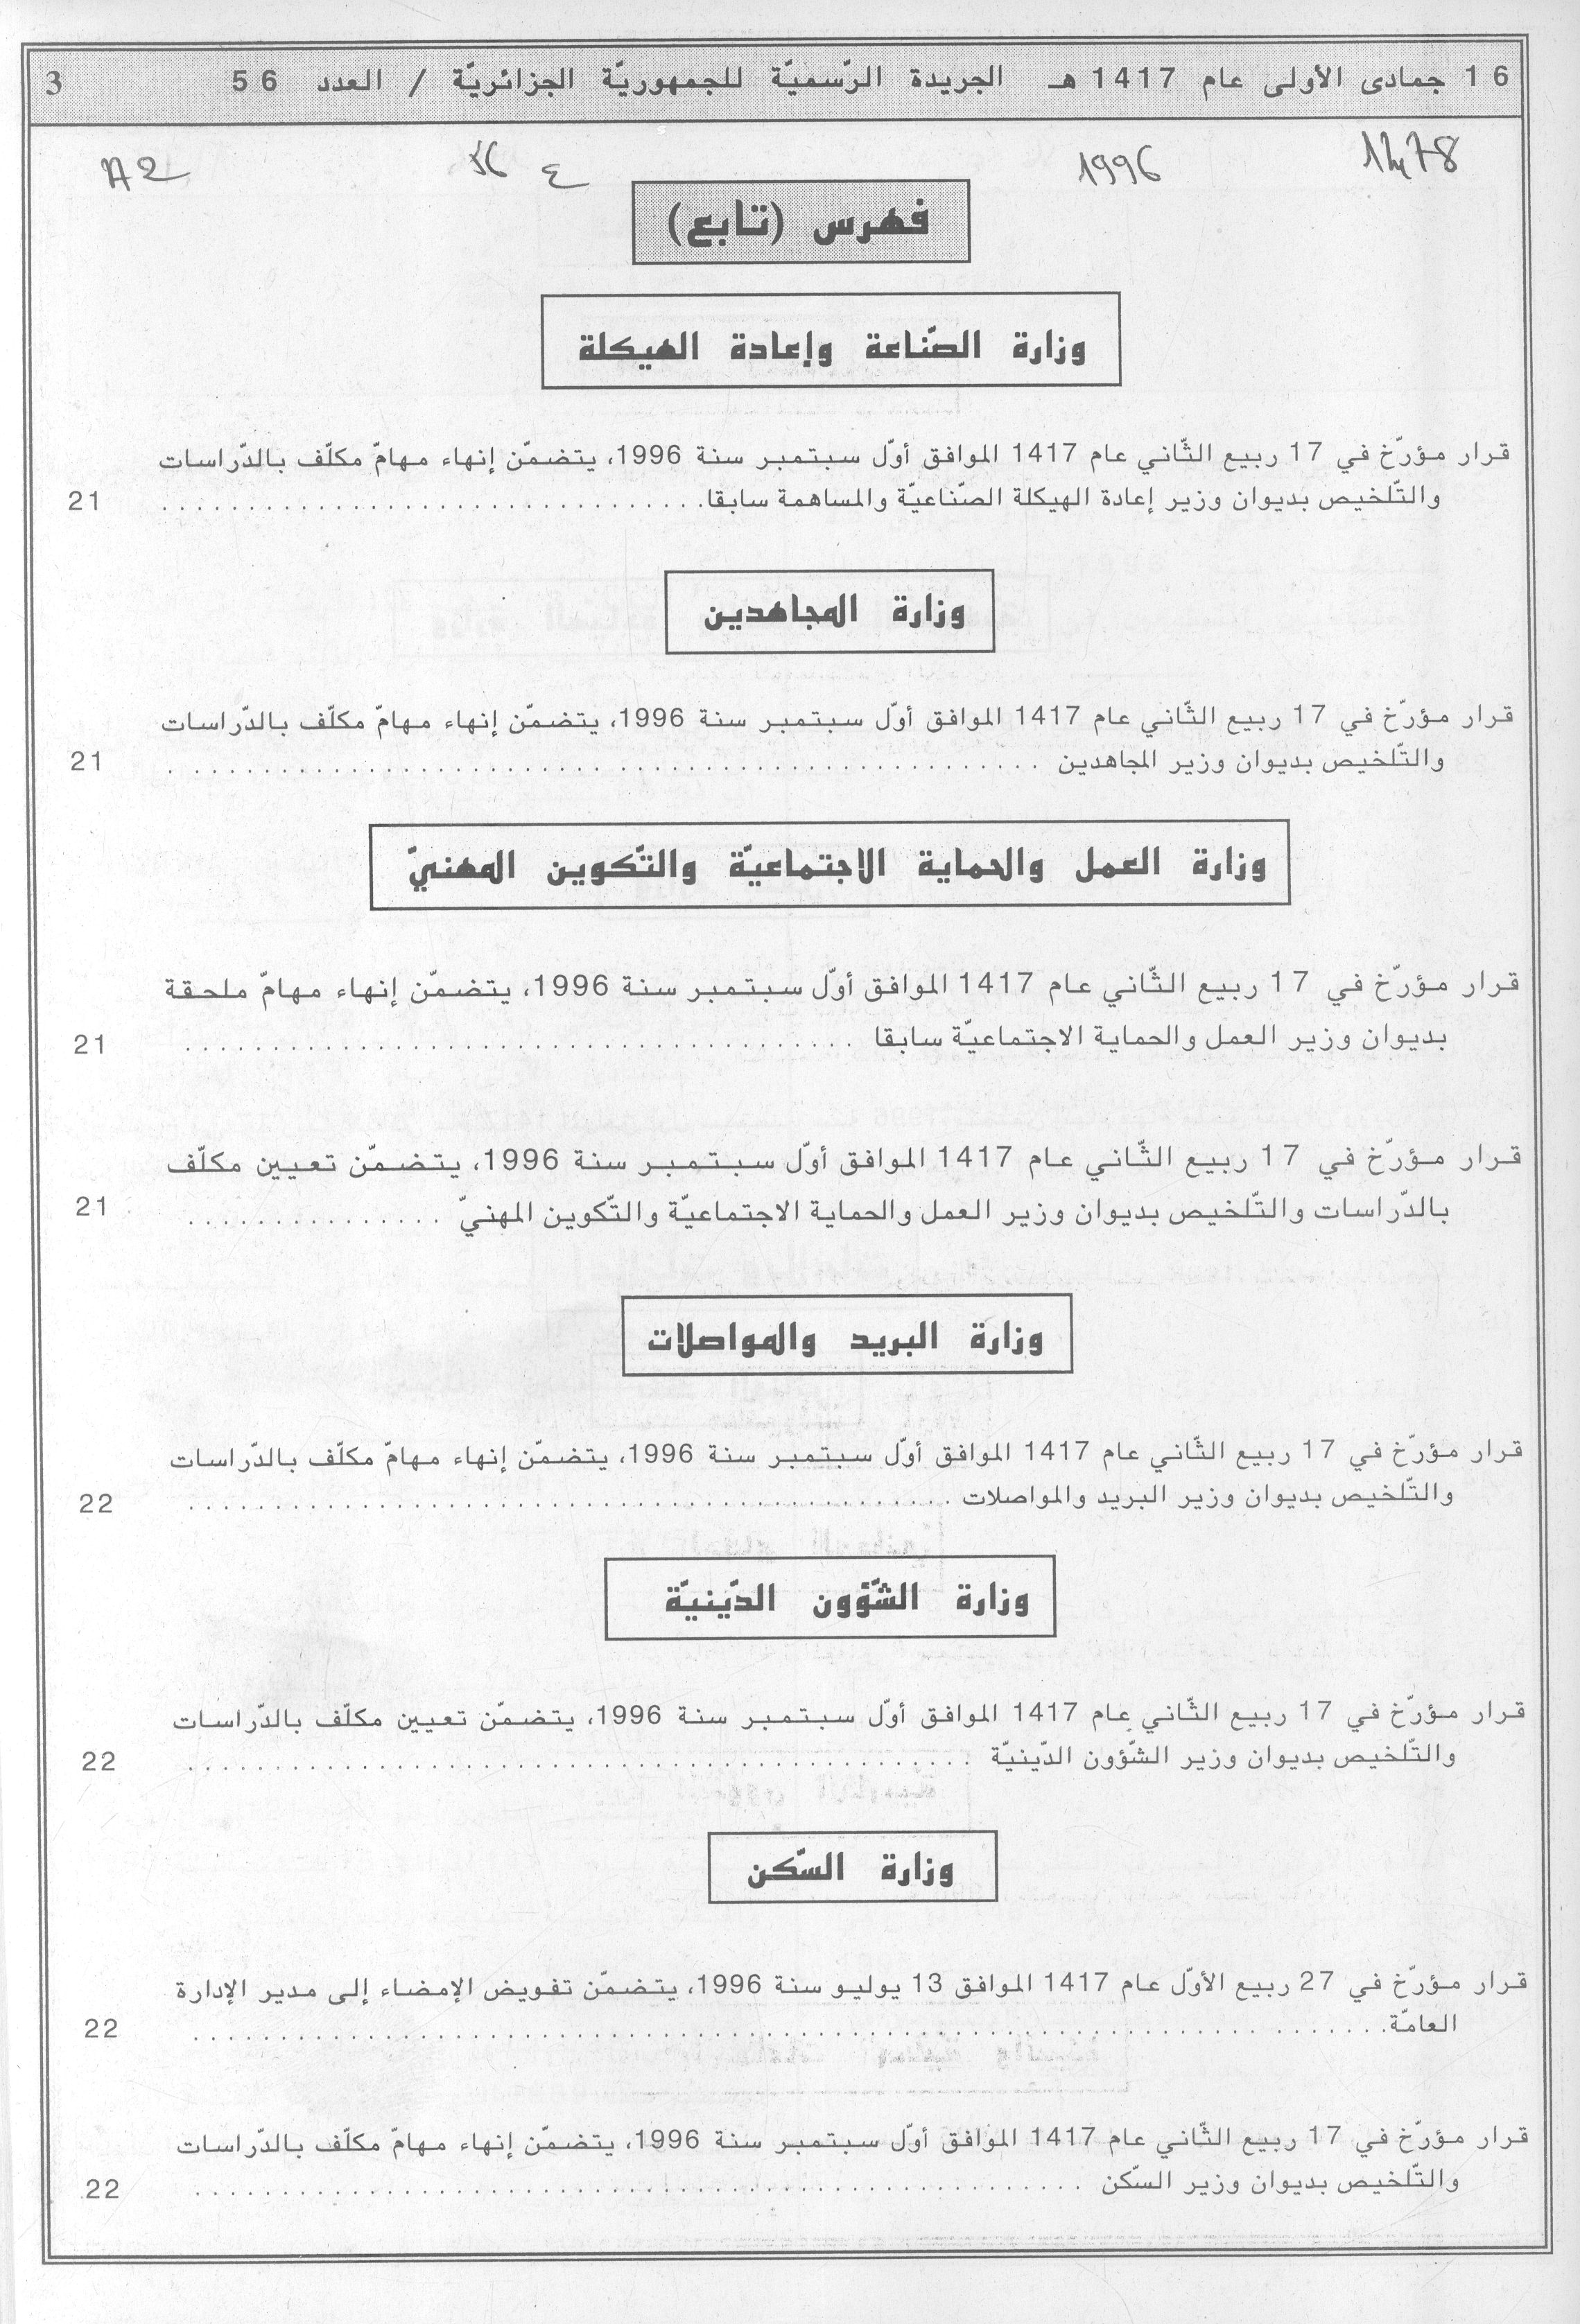 16 جمادى الأولى عام 1417 هـ الجريدة الرّسميّة للجمهوريّة الجزائريّة / العدد 56 3
1996 ع 36 A2
فهرس (تابع)
وزارة الصّناعة وإعادة الهيكلة
قرار مؤرّخ في 17 ربيع الثّاني عام 1417 الموافق أوّل سبتمبر سنة 1996، يتضمّن إنهاء مهامّ مكلّف بالدّراسات
والتّلخيص بديوان وزير إعادة الهيكلة الصّناعيّة والمساهمة سابقا. . . . . . . . . . . . . . . . . . . . . . . . . . . . . . . . 21
وزارة المجاهدين
قرار مؤرّخ في 17 ربيع الثّاني عام 1417 الموافق أوّل سبتمبر سنة 1996، يتضمّن إنهاء مهامّ مكلّف بالدّراسات
والتّلخيص بديوان وزير المجاهدين . . . . . . . . . . . . . . . . . . . . . . . . . . . . . . . . . . . . . . . . . . . . . . . . . . 21
وزارة العمل والحماية الاجتماعيّة والتّكوين المهنيّ
قرار مؤرّخ في 17 ربيع الثّاني عام 1417 الموافق أوّل سبتمبر سنة 1996، يتضمّن إنهاء مهامّ ملحقة
بديوان وزير العمل والحماية الاجتماعيّة سابقا . . . . . . . . . . . . . . . . . . . . . . . . . . . . . . . . . . . . . . . 21
قرار مؤرّخ في 17 ربيع الثّاني عام 1417 الموافق أوّل سبتمبر سنة 1996، يتضمّن تعيين مكلّف
بالدّراسات والتّلخيص بديوان وزير العمل والحماية الاجتماعيّة والتّكوين المهنيّ . . . . . . . . . . . . . . . 21
وزارة البريد والمواصلات
قرار مؤرّخ في 17 ربيع الثّاني عام 1417 الموافق أوّل سبتمبر سنة 1996، يتضمّن إنهاء مهامّ مكلّف بالدّراسات
والتّلخيص بديوان وزير البريد والمواصلات . . . . . . . . . . . . . . . . . . . . . . . . . . . . . . . . . . . . . . . . . . . . 22
وزارة الشّؤون الدّينيّة
قرار مؤرّخ في 17 ربيع الثّاني عام 1417 الموافق أوّل سبتمبر سنة 1996، يتضمّن تعيين مكلّف بالدّراسات
والتّلخيص بديوان وزير الشّؤون الدّينيّة . . . . . . . . . . . . . . . . . . . . . . . . . . . . . . . . . . . . . . . . . . . . . 22
وزارة السّكن
قرار مؤرّخ في 27 ربيع الأوّل عام 1417 الموافق 13 يوليو سنة 1996، يتضمّن تفويض الإمضاء إلى مدير الإدارة
العامّة. . . . . . . . . . . . . . . . . . . . . . . . . . . . . . . . . . . . . . . . . . . . . . . . . . . . . . . . . . . . . . . . . . . . . 22
قرار مؤرّخ في 17 ربيع الثّاني عام 1417 الموافق أوّل سبتمبر سنة 1996، يتضمّن إنهاء مهامّ مكلّف بالدّراسات
والتّلخيص بديوان وزير السّكن . . . . . . . . . . . . . . . . . . . . . . . . . . . . . . . . . . . . . . . . . . . . . . . . . . . 22